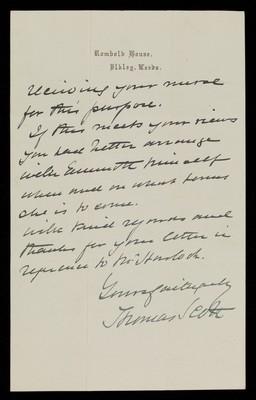 Rombold House,
Ilkley, Leeds.
receiving your nurse
for this purpose.
If this meets your views
you had better arrange
with Emmott himself
when and on what terms
she is to come.
With kind regards and
thanks for your letter in
reference to Mr
Yours faithfully
Thomas Scott